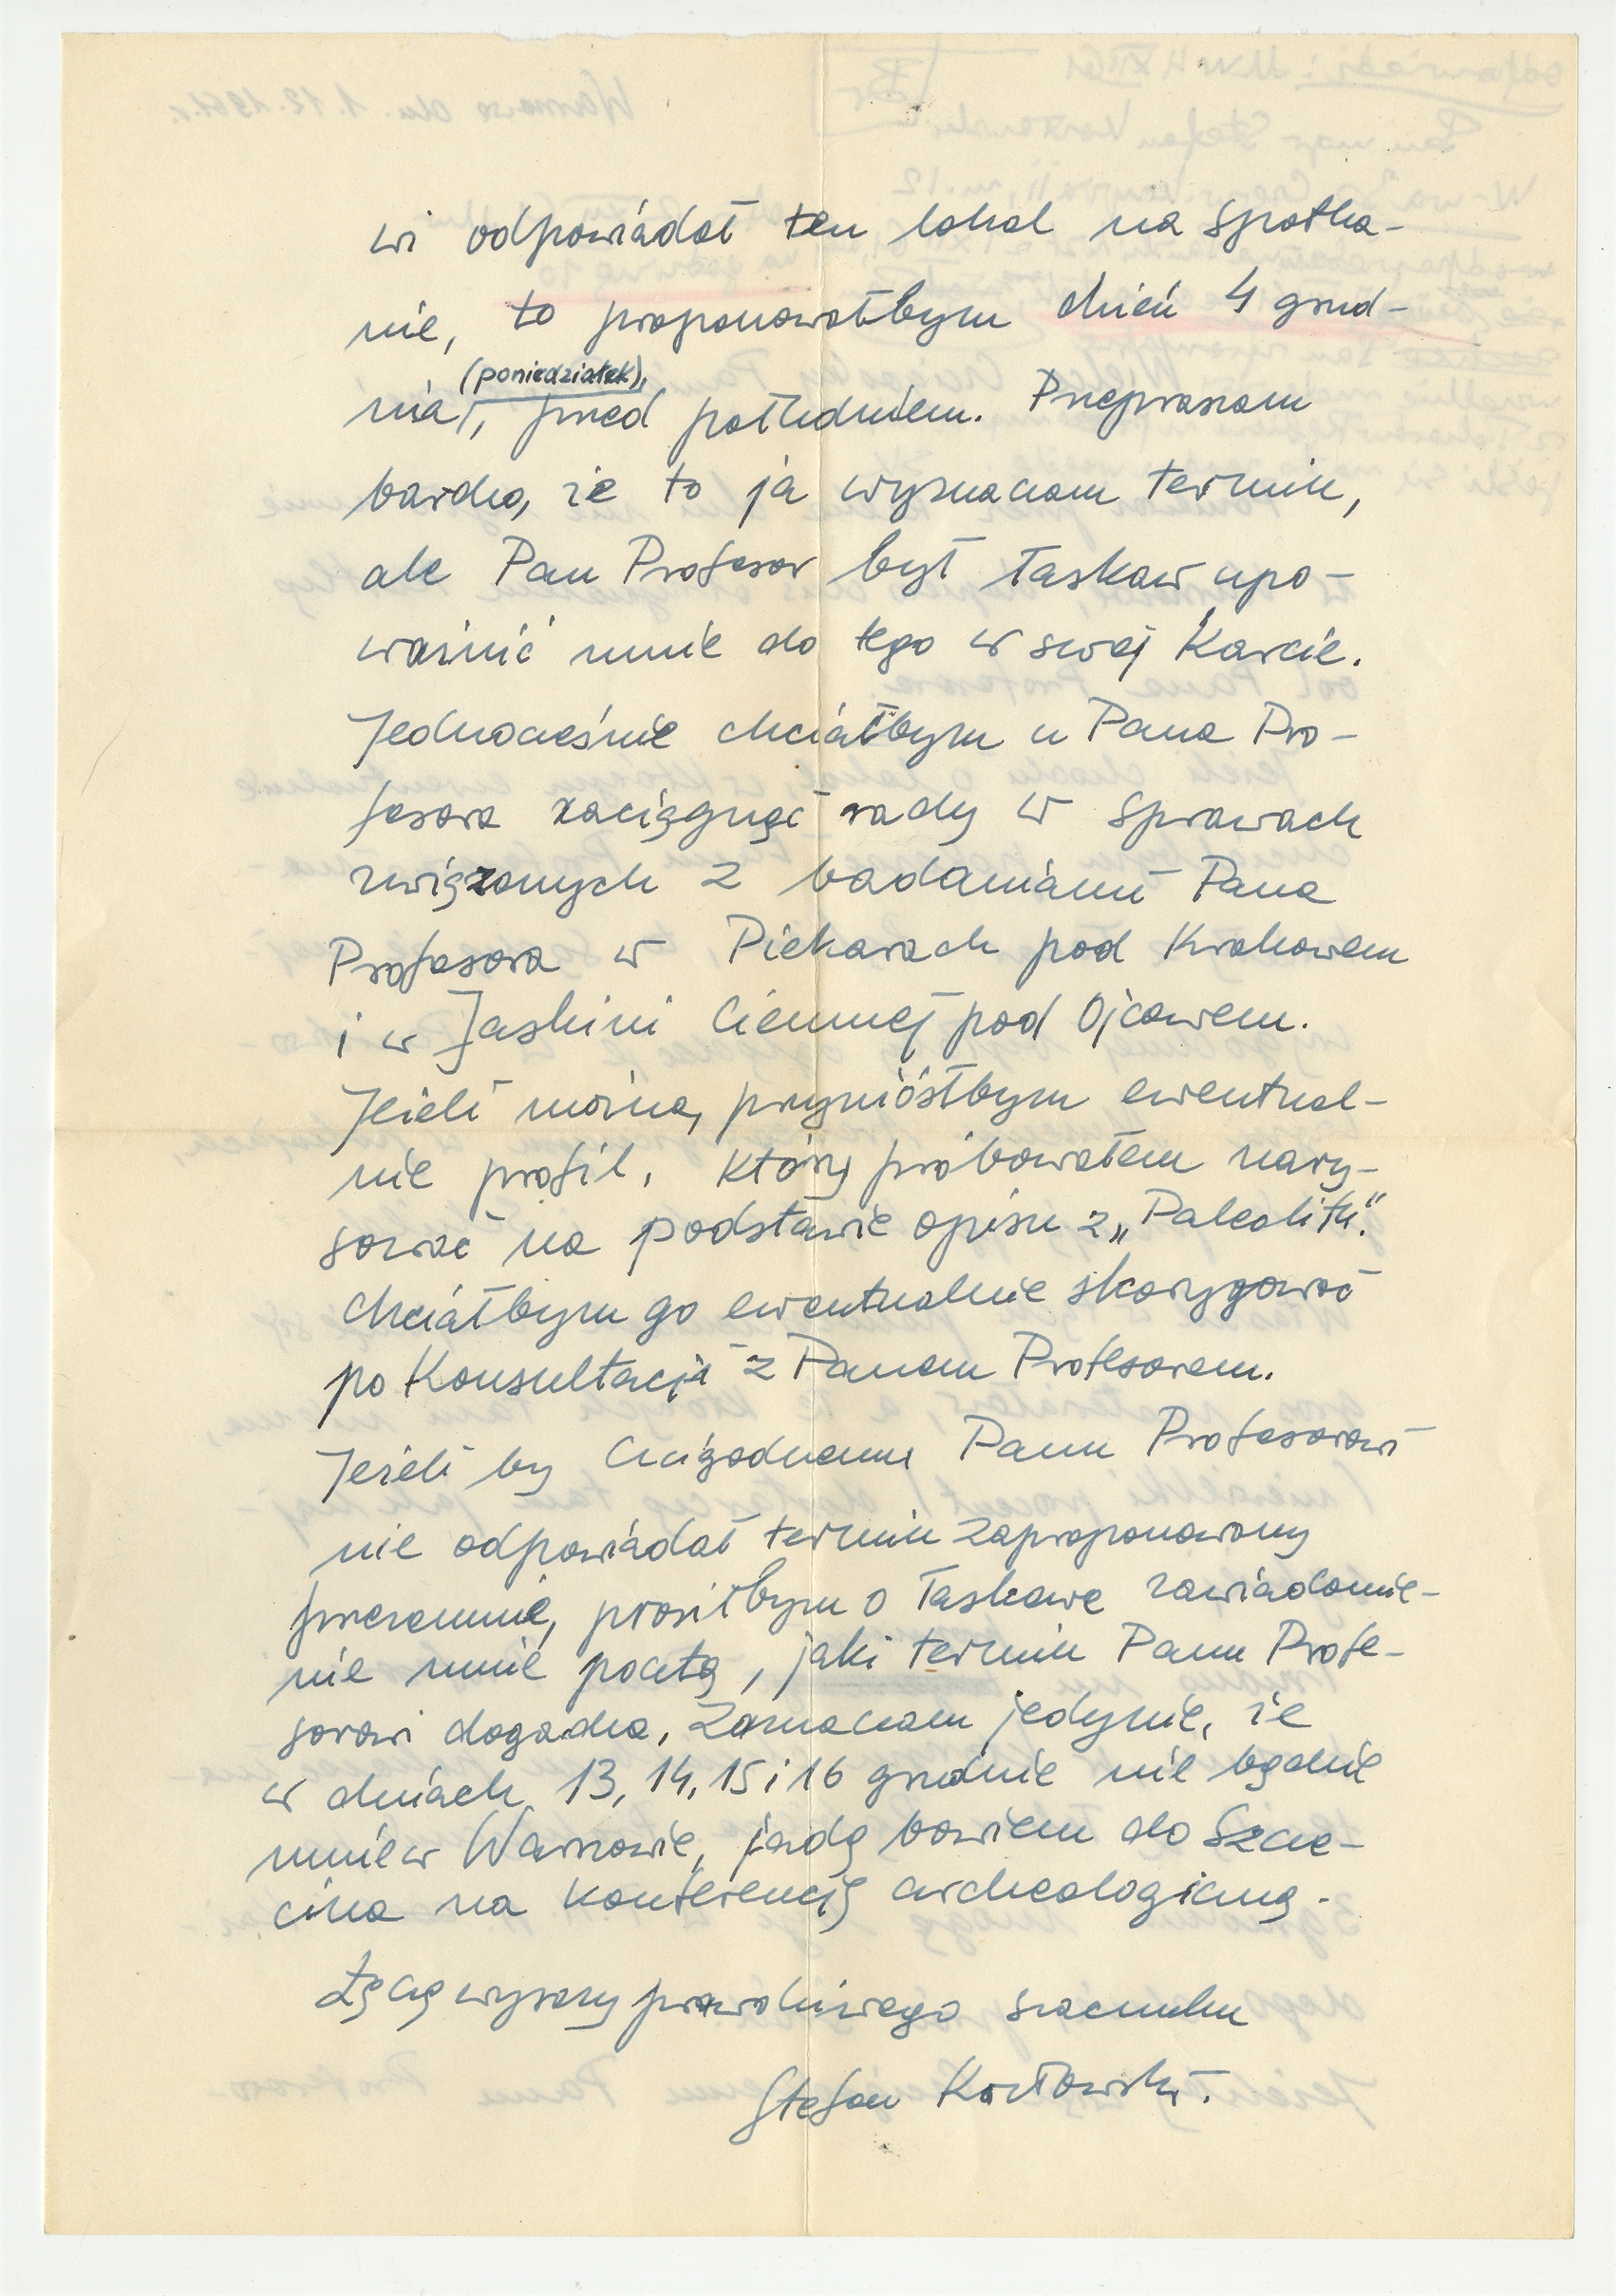 wi odpowiadał ten lokal na spotka-
nie, to proponowałbym dzień 4 grud-
(poniedziałek),
nia, przed południem. Przepraszam
bardzo, że to ja wyznaczam termin,
ale Pan Profesor był łaskaw upo-
ważnić mnie do tego w swej Karcie.
Jednocześnie chciałbym u Pana Pro-
fesora zaciągnąć rady w sprawach
związanych z badaniami Pana
Profesora w Piekarach pod Krakowem
i w Jaskini Ciemnej pod Ojcowem.
Jeżeli można, przyniósłbym ewentual-
nie profil, który próbowałem nary-
sować na podstawie opisu z „Paleolitu."
Chciałbym go ewentualnie skorygować
po Konsultacji z Panem Profesorem.
Jeżeli by Czcigodnemu Panu Profesorowi
nie odpowiadał termin zaproponowany
przezemnie, prosiłbym o łaskawe zawiadomie-
nie mnie pocztą, jaki termin Panu Profe-
sorowi dogadza. Zaznaczam jedynie, że
w dniach 13, 14, 15 i 16 grudnia nie będzie
mnie w Warszawie, jadę bowiem do Szcze-
cina na Konferencję archeologiczną.
Łączę wyrazy prawdziwego szacunku
Stefan Kozłowski.